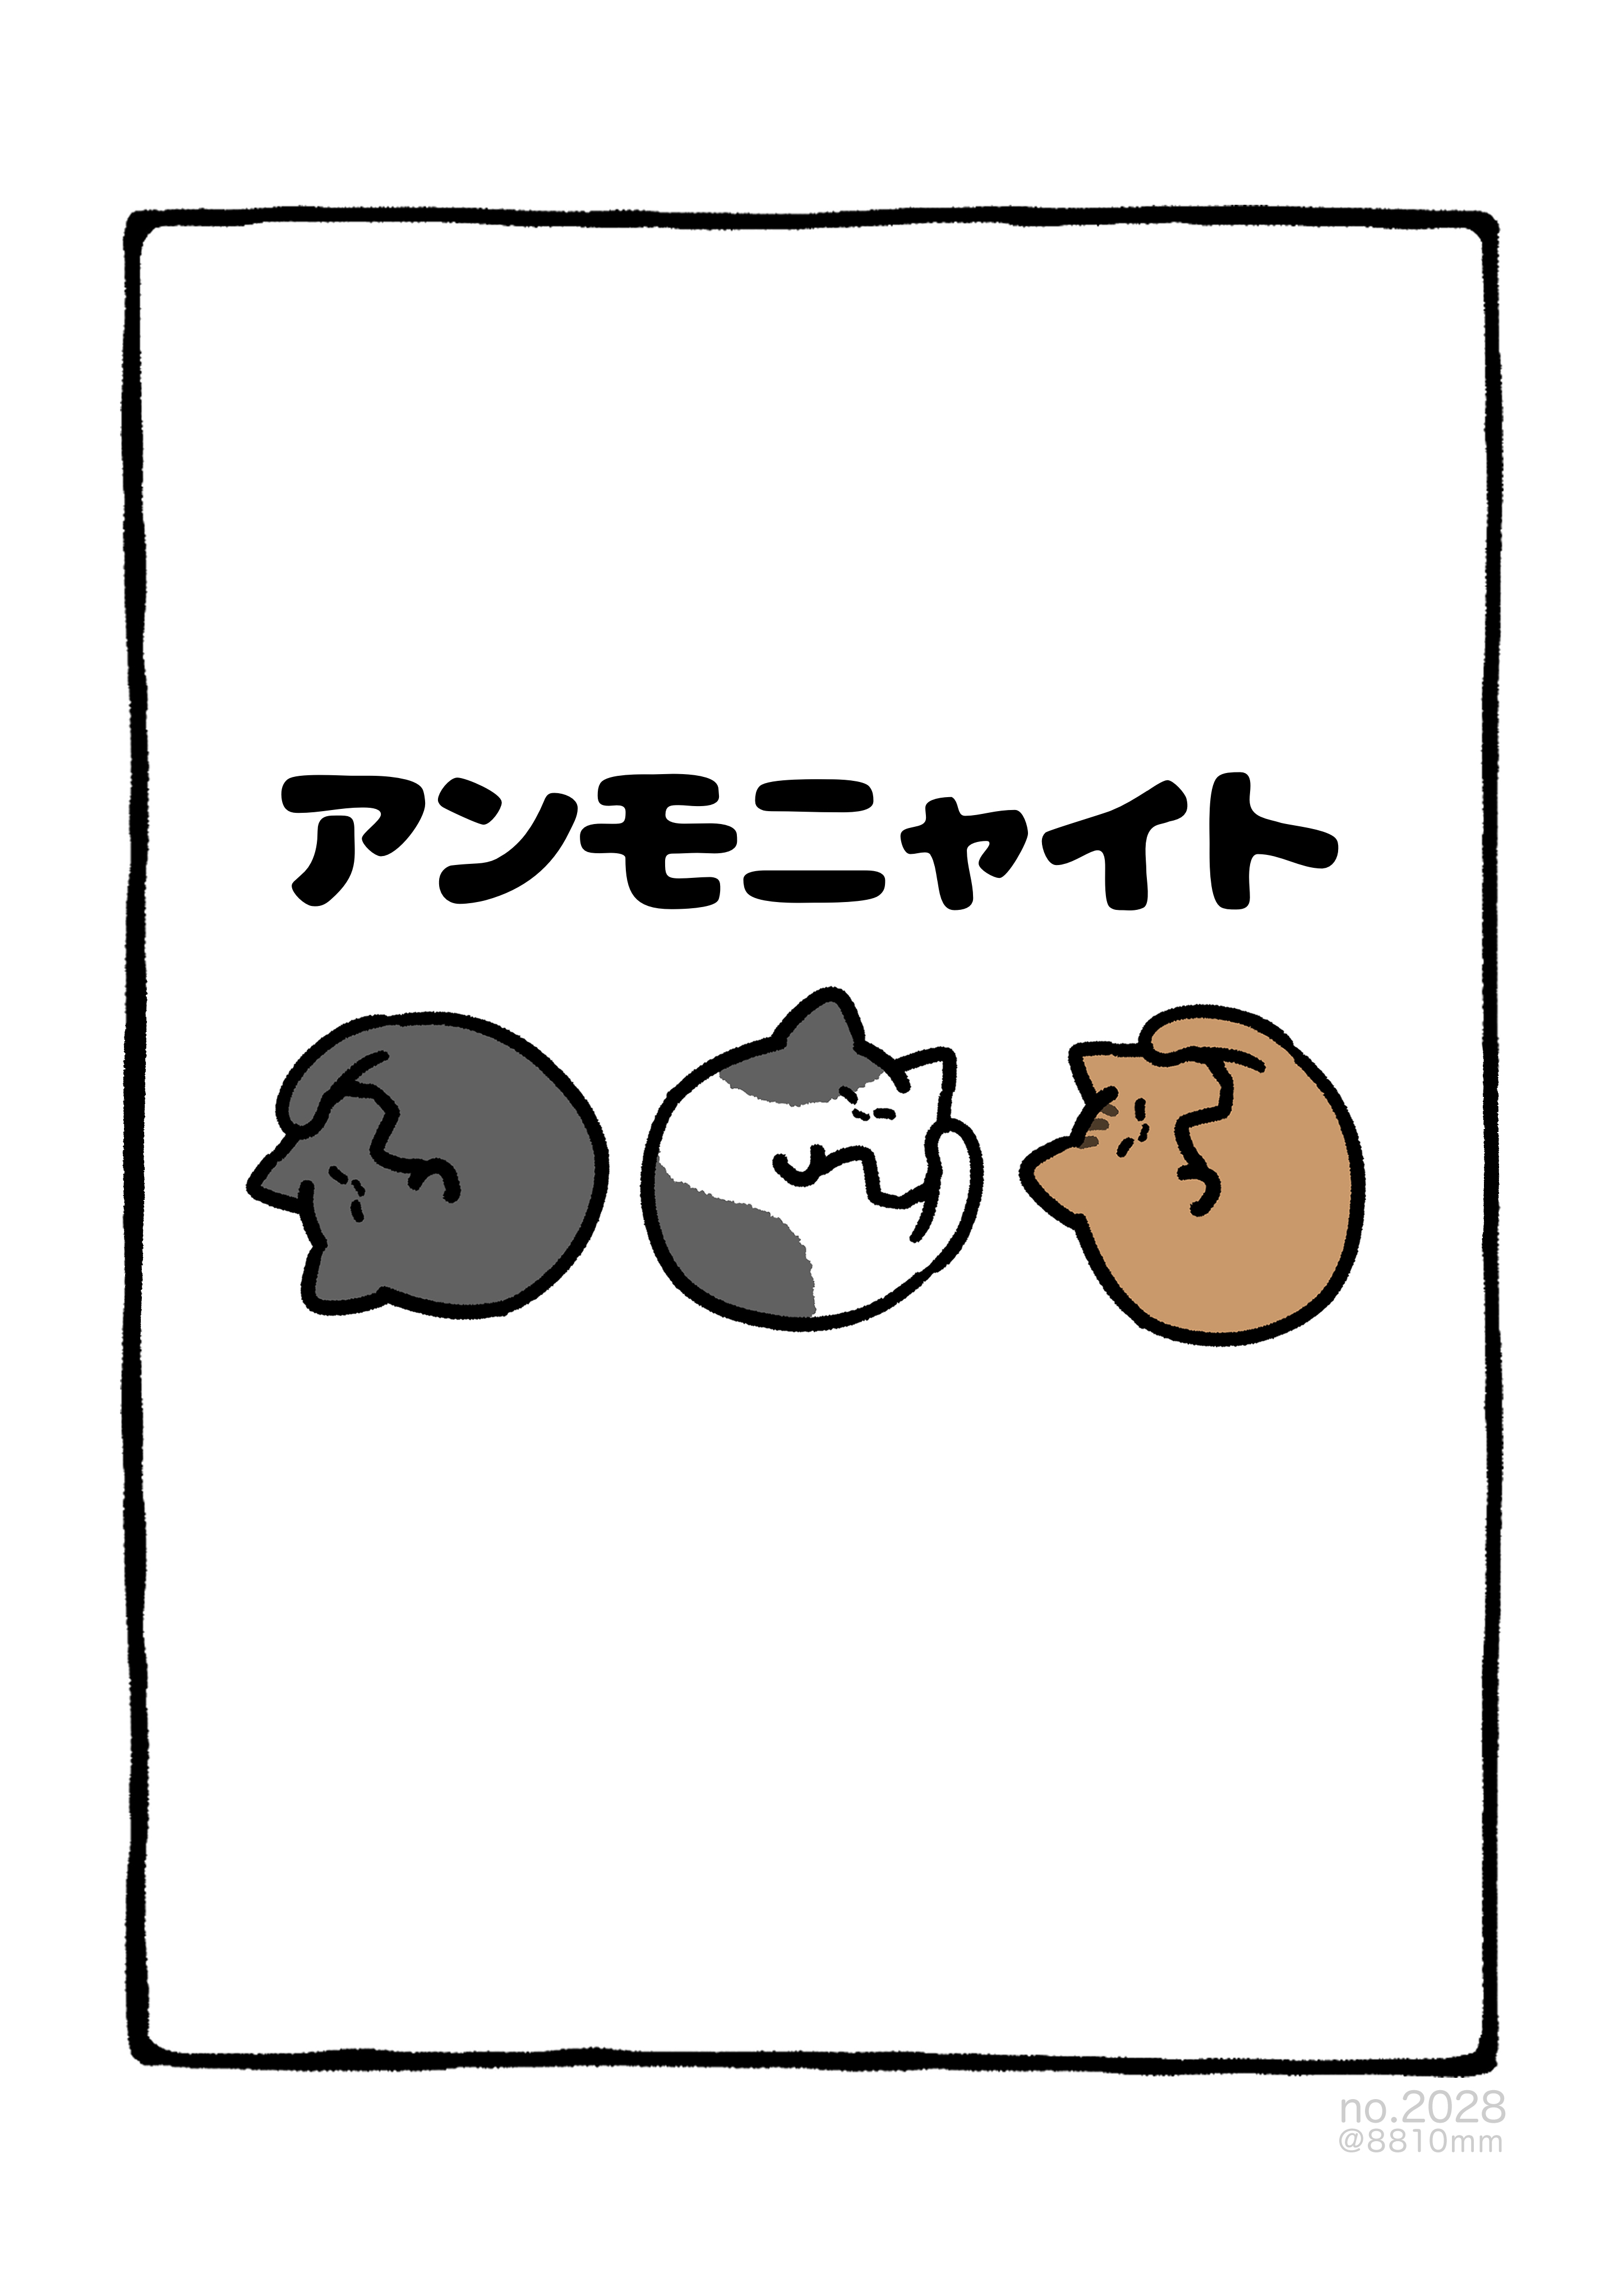 アンモニャイト
no.2028
@8810mm